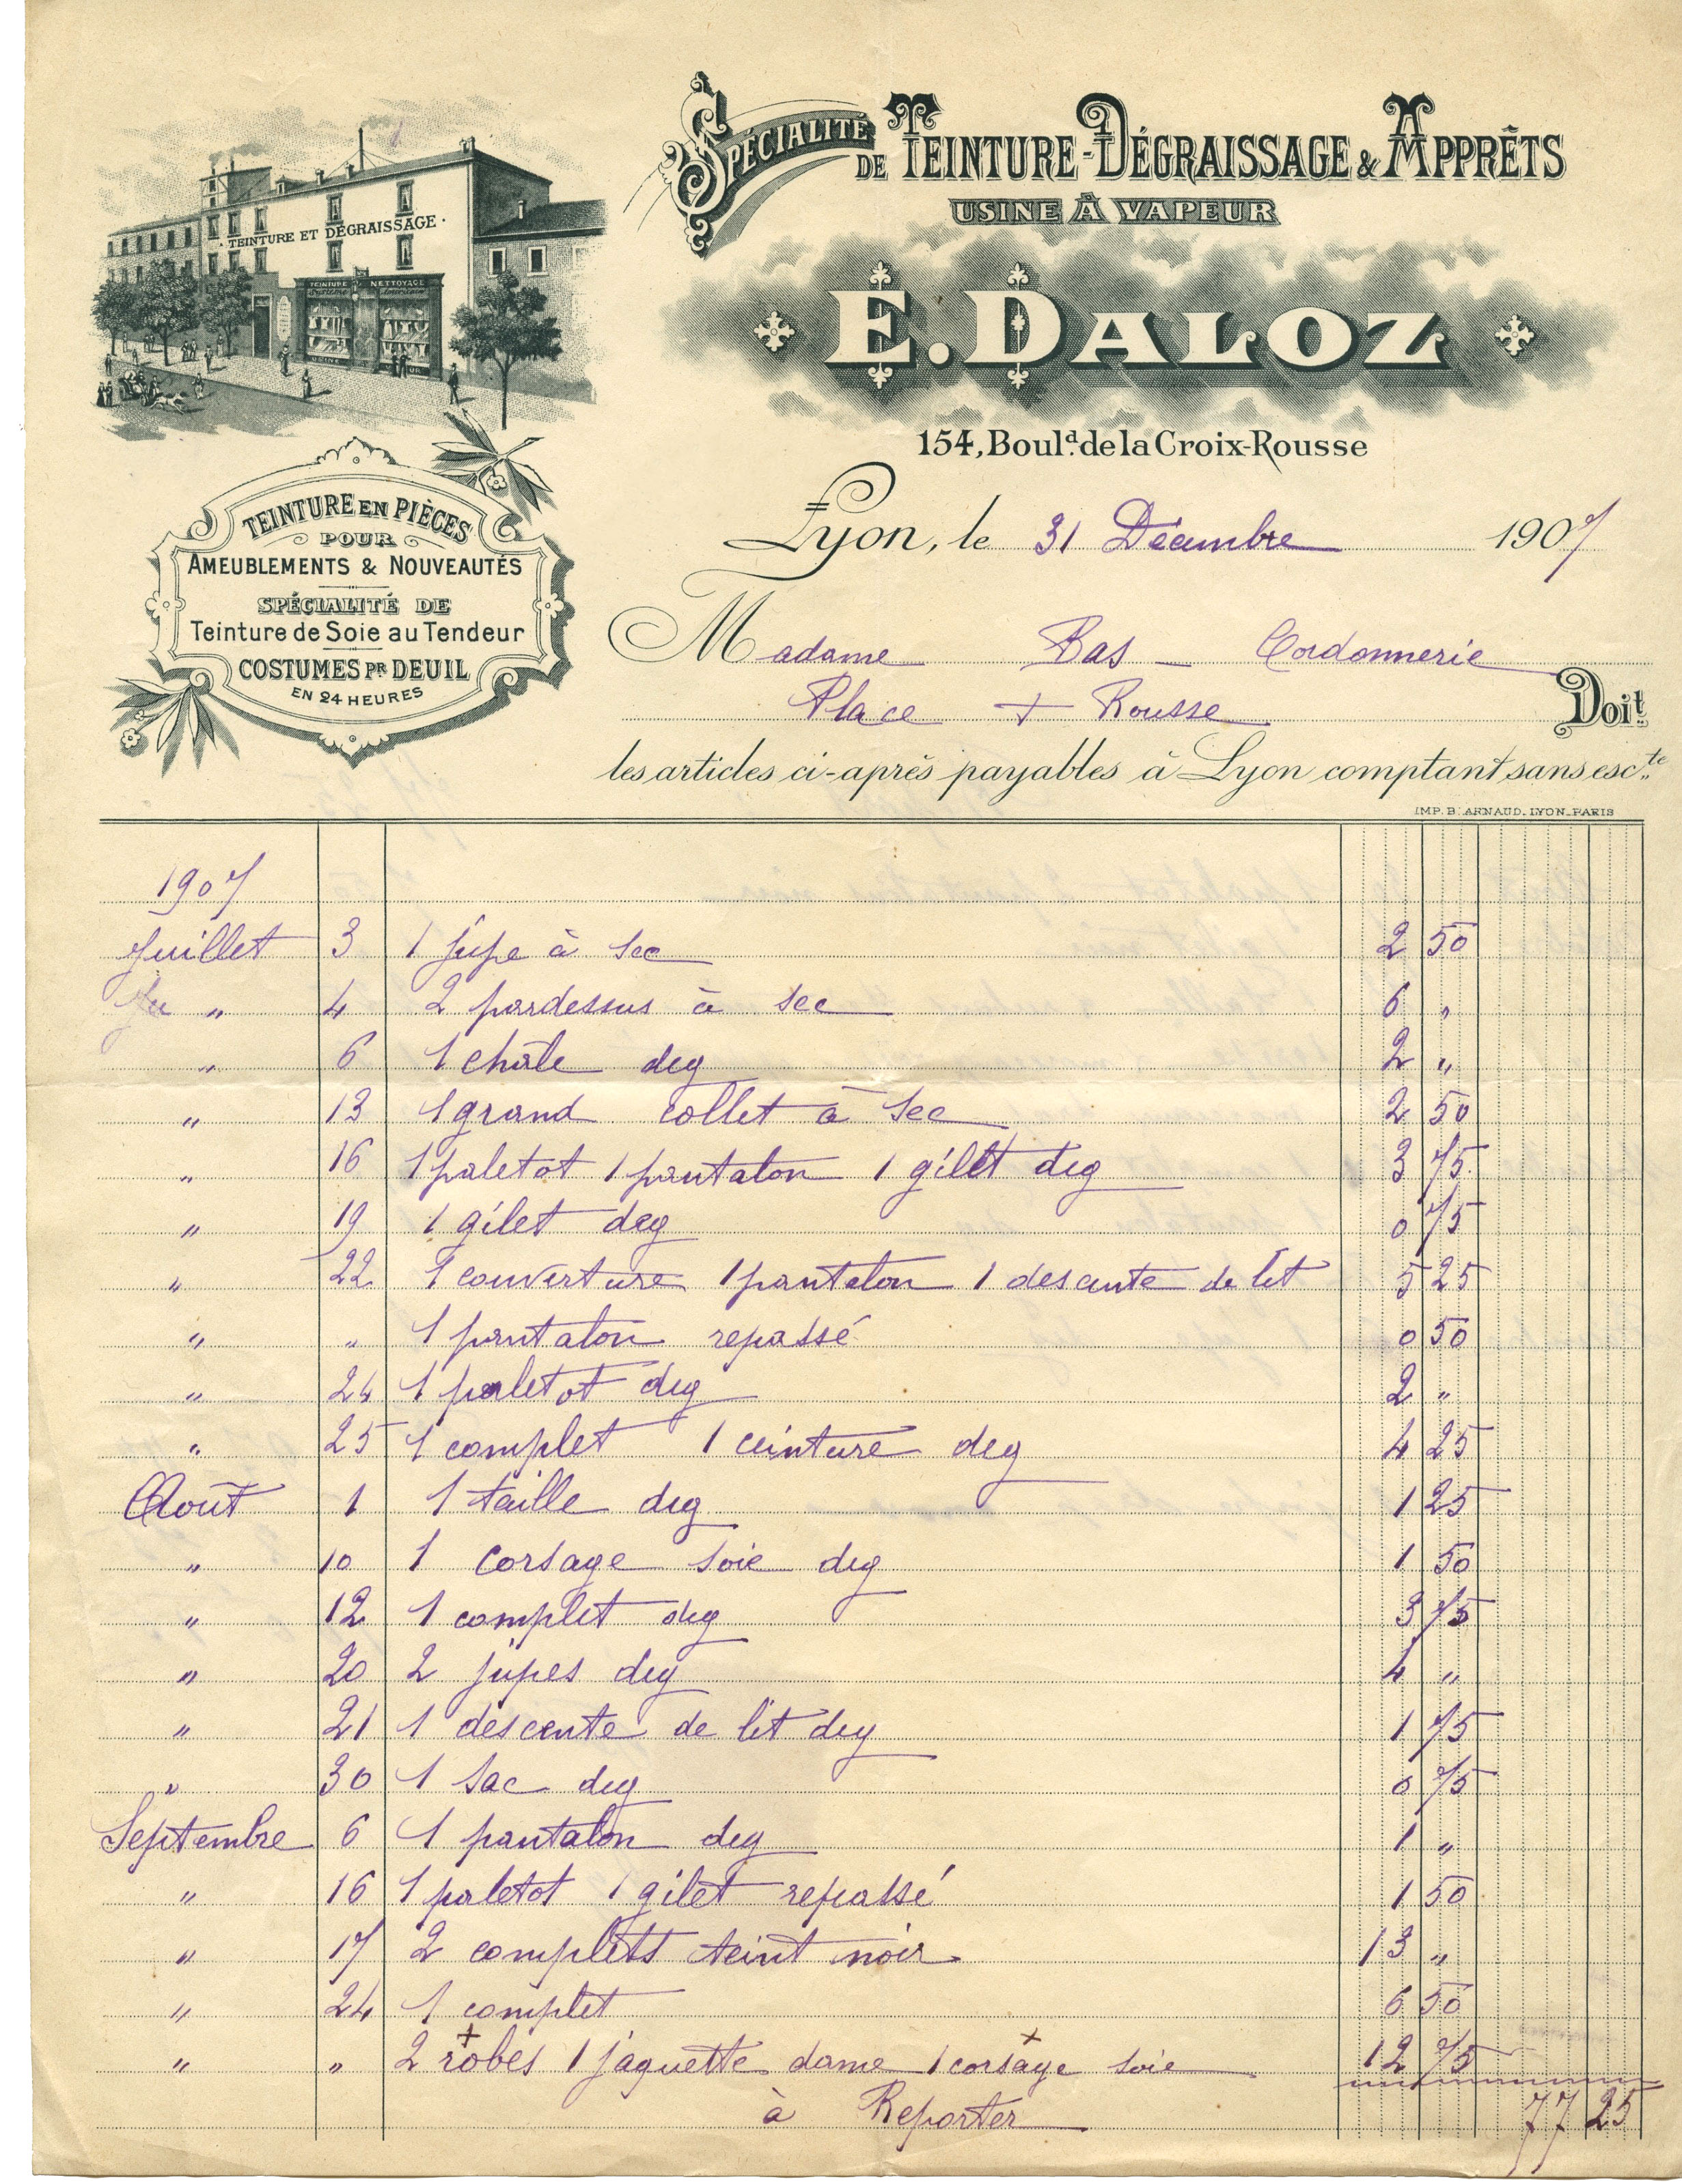 SPÉCIALITÉ DE TEINTURE-DÉGRAISSAGE & APPRÊTS
USINE À VAPEUR
E. DALOZ
154, Boul.d de la Croix-Rousse
· TEINTURE ET DÉGRAISSAGE ·
TEINTURE NETTOYAGE
TEINTURE EN PIÈCES
POUR
AMEUBLEMENTS & NOUVEAUTÉS
SPÉCIALITÉ DE
Teinture de Soie au Tendeur
COSTUMES PR DEUIL
EN 24 HEURES
Lyon, le 31 Décembre 1907
Madame Bas - Cordonnerie
Place + Rousse Doit
les articles ci-après payables à Lyon comptant sans esc.te
IMP. B. ARNAUD. LYON_PARIS
1907
Juillet 3 1 jupe à sec 2 50
" 4 2 pardessus à sec 6 "
" 6 1 châle deg 2 "
" 13 1 grand collet à sec 2 50
" 16 1 paletot 1 pantalon 1 gilet deg 3 75
" 19 1 gilet deg 0 75
" 22 1 couverture 1 pantalon 1 desante de lit 5 25
" " 1 pantalon repassé 0 50
" 24 1 paletot deg 2 "
" 25 1 complet 1 ceinture deg 4 25
Août 1 1 taille deg 1 25
" 10 1 corsage soie deg 1 50
" 12 1 complet deg 3 75
" 20 2 jupes deg 4 "
" 21 1 descente de lit deg 1 75
" 30 1 sac deg 0 75
Septembre 6 1 pantalon deg 1 "
" 16 1 paletot 1 gilet repassé 1 50
" 17 2 complets teint noir 13 "
" 24 1 complet 6 50
" " 2 robes 1 jaquette dame 1 corsage soie 12 75
à Reporter 77 25